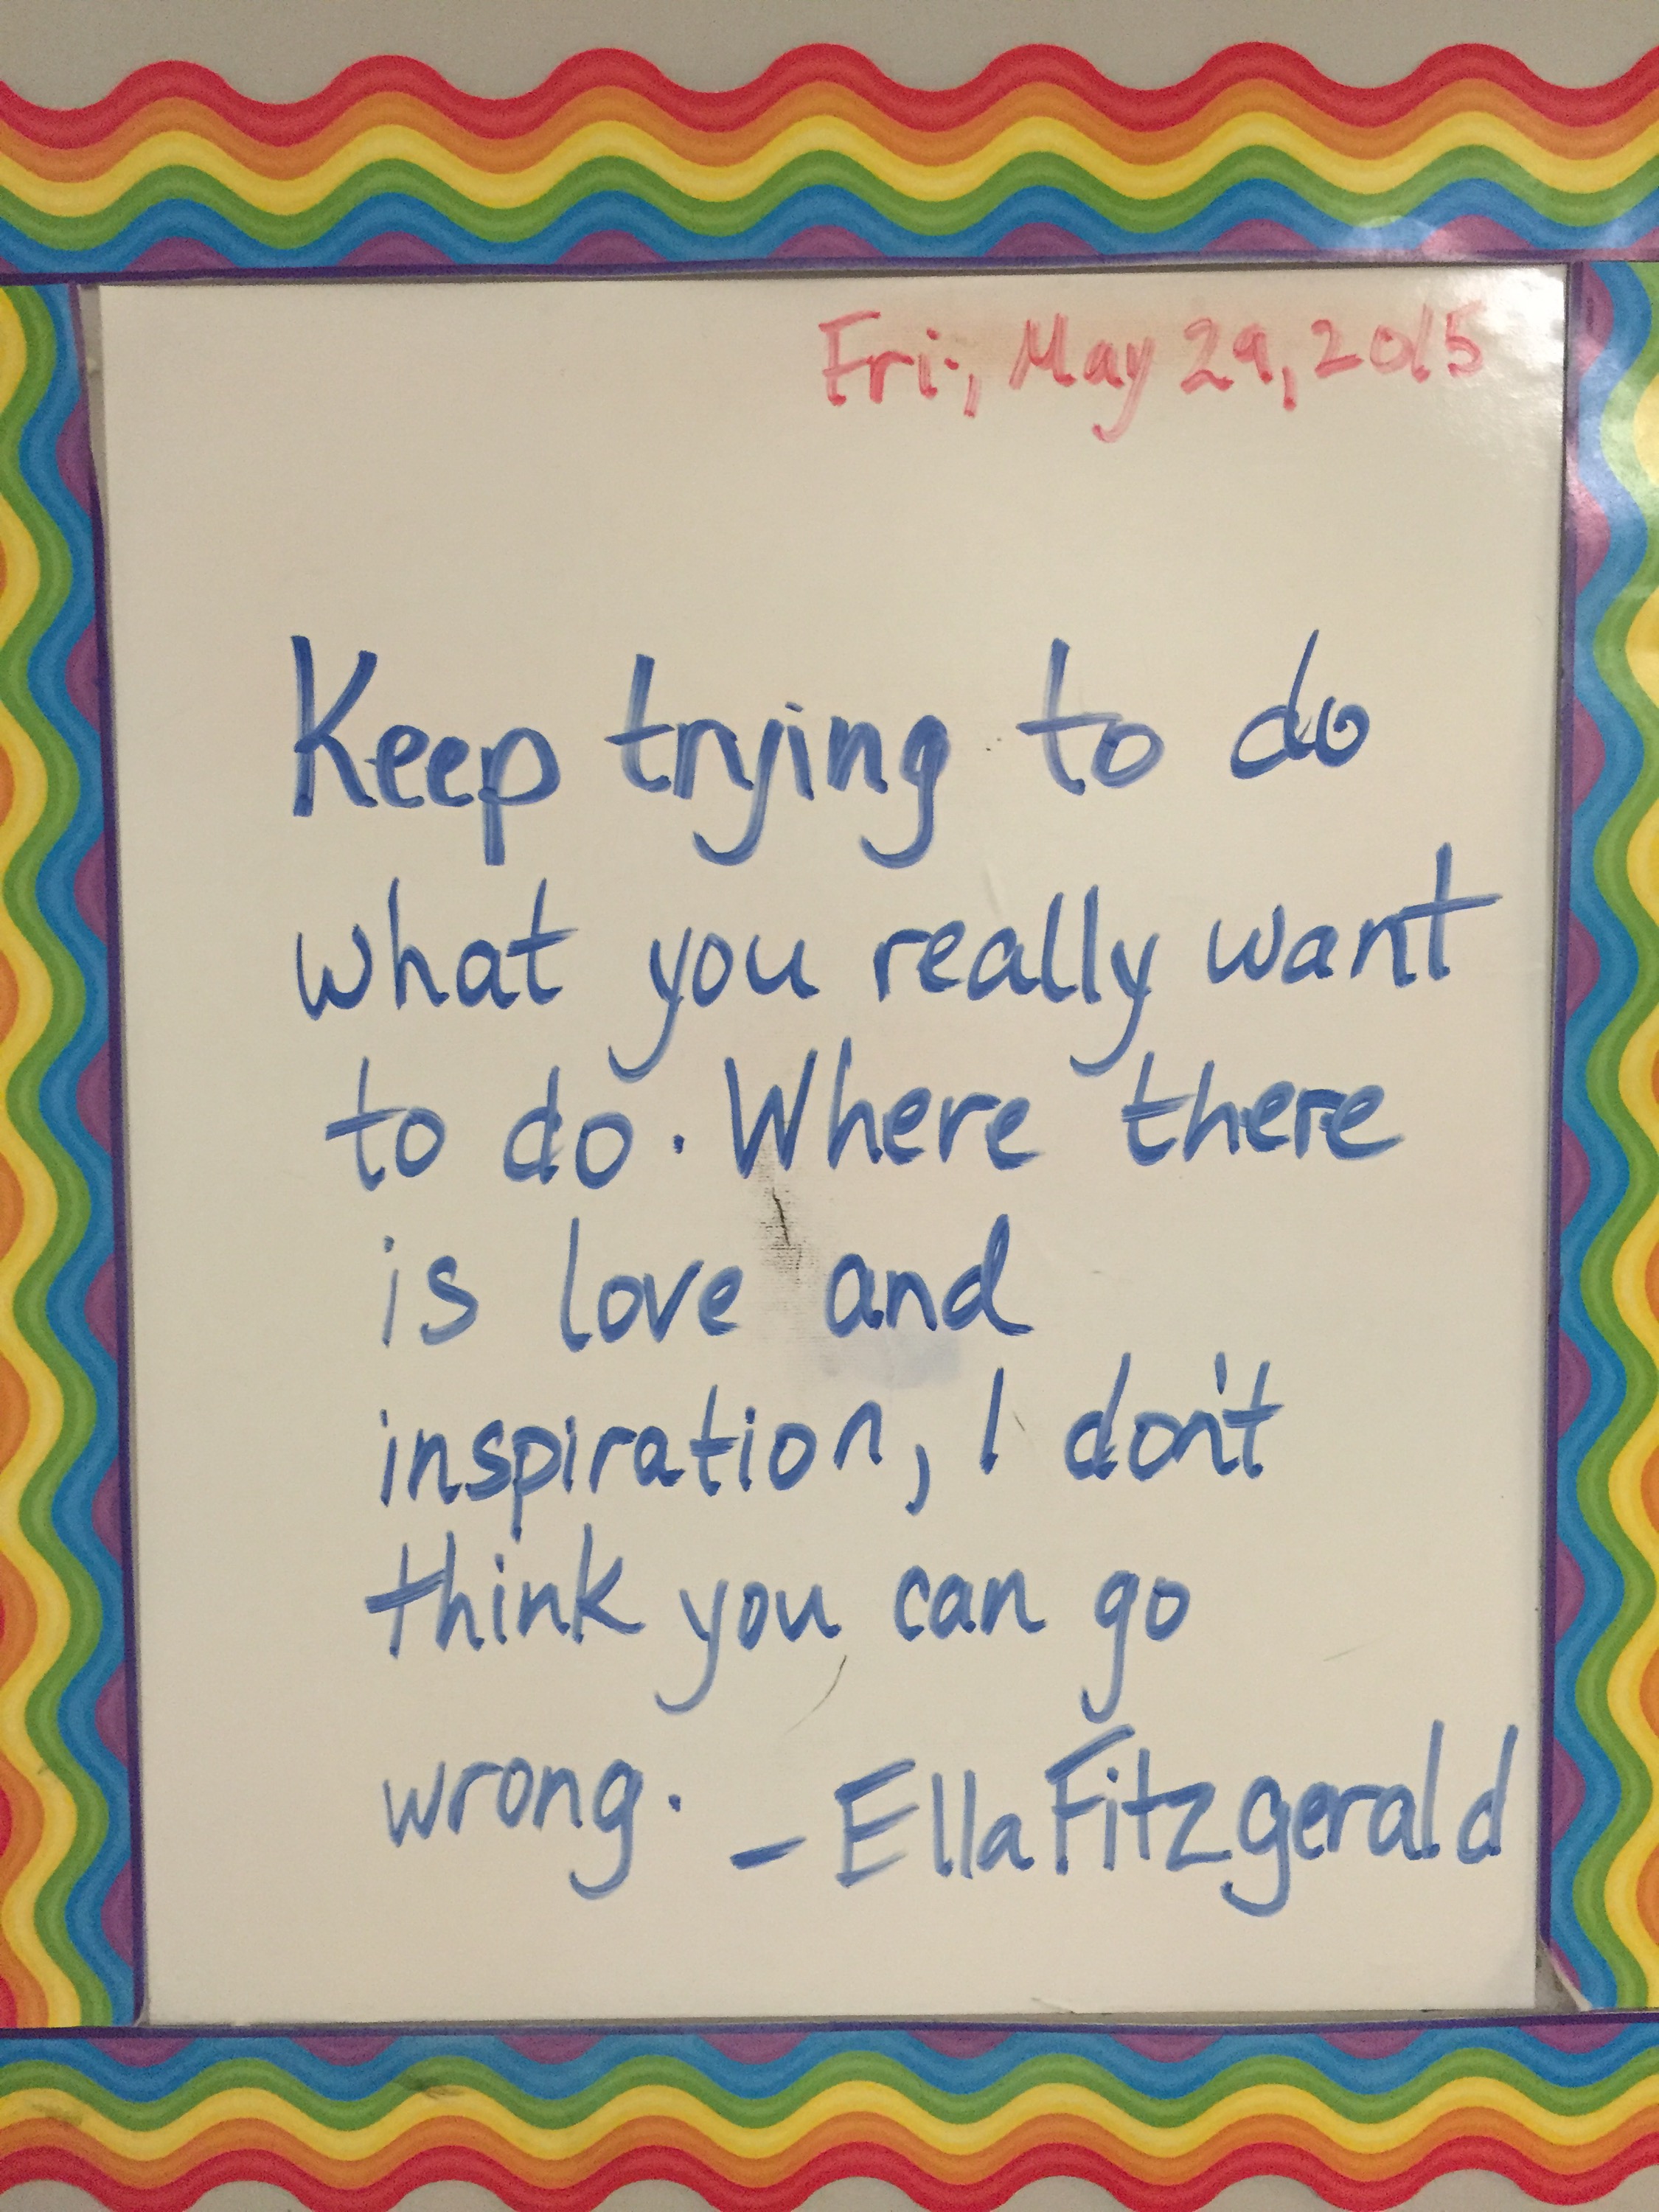 Fri., May 29, 2015
Keep trying to do
what you really want
to do. Where there
is love and
inspiration, I don't
think you can go
wrong. - Ella Fitzgerald